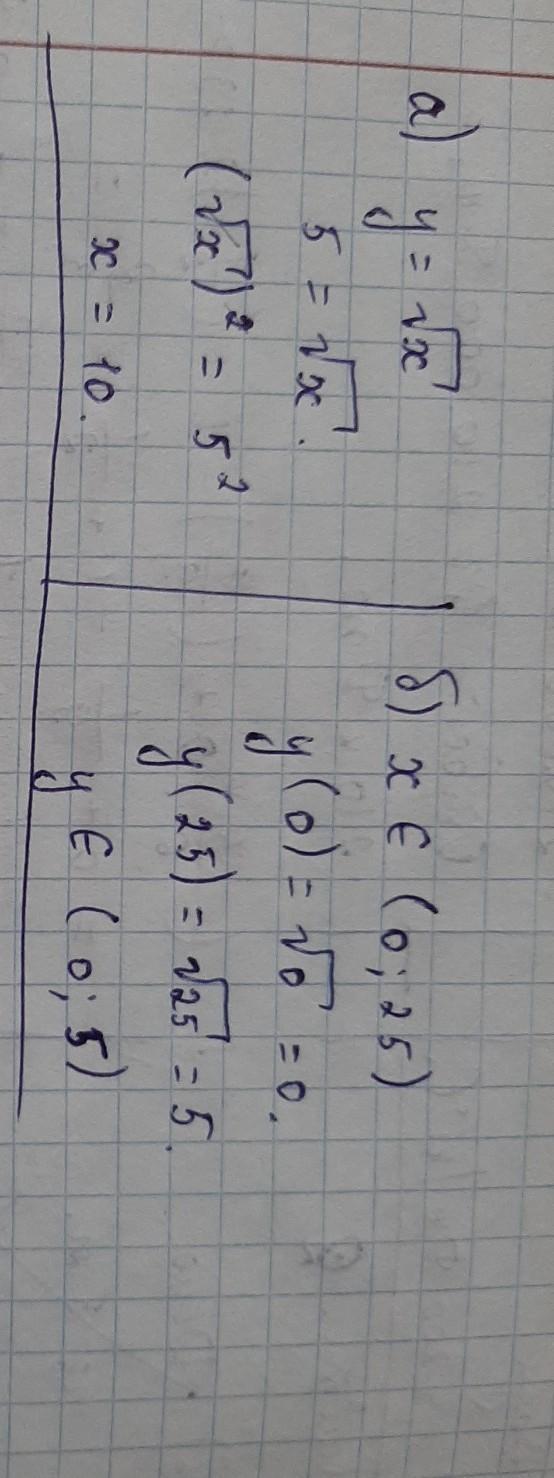 а) y = √x
5 = √x.
(√x)² = 5²
x = 10.
б) x ∈ (0; 25)
y(0) = √0 = 0.
y(25) = √25 = 5.
y ∈ (0; 5)